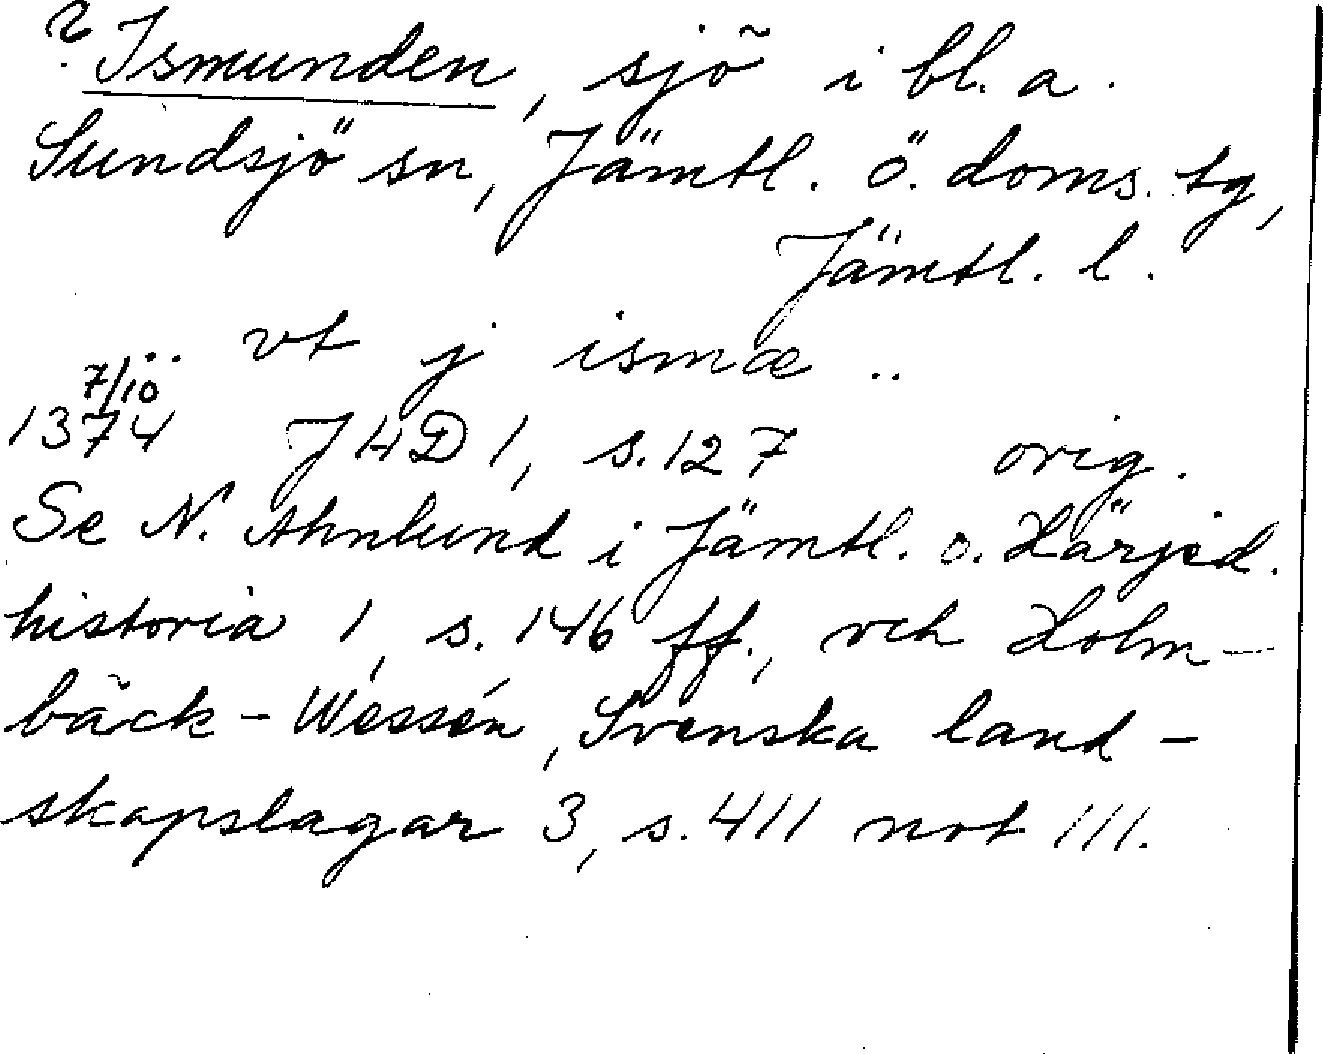 ? Ismunden, sjö i bl. a.
Sundsjö sn, Jämtl. ö. doms. tg,
Jämtl. l.
.. vt j ismæ ..
7/10
1374 JHD 1, s. 127 orig.
Se N. Ahnlund i Jämtl. o. Härjed.
historia 1, s. 146 ff., och Holm-
bäck - Wessén, Svenska land-
skapslagar 3, s. 411 not 111.